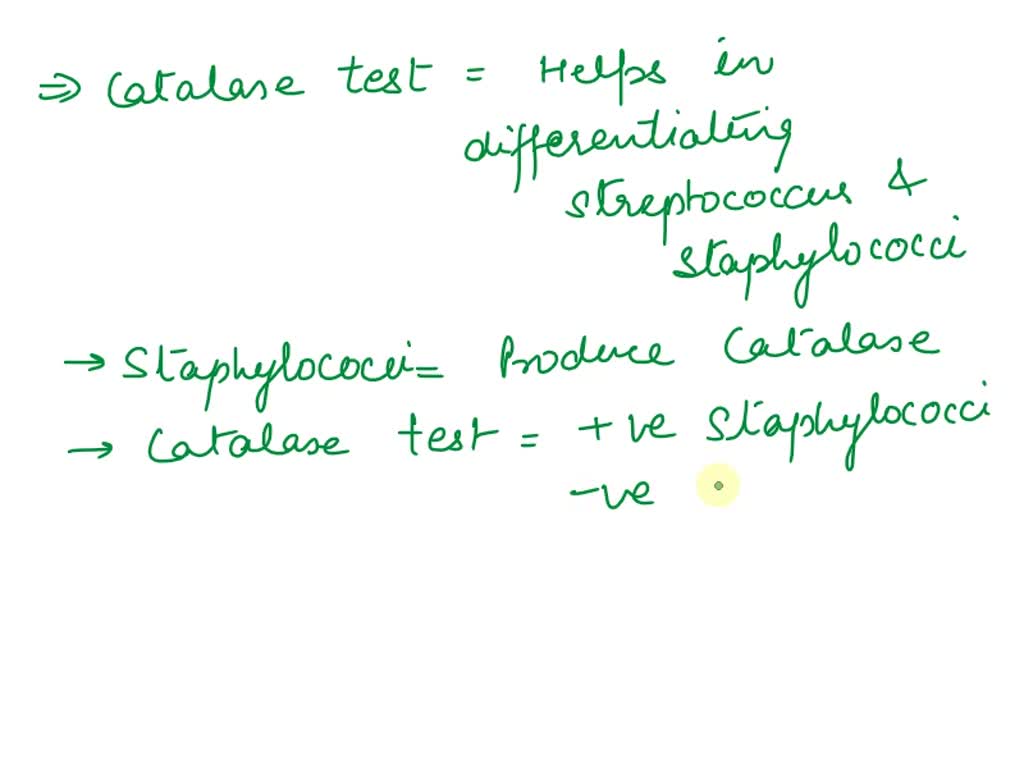 ⇒ Catalase test = Helps in
differentiating
streptococcus &
staphylococci
→ Staphylococci = Produce Catalase
→ Catalase test = +ve Staphylococci
-ve